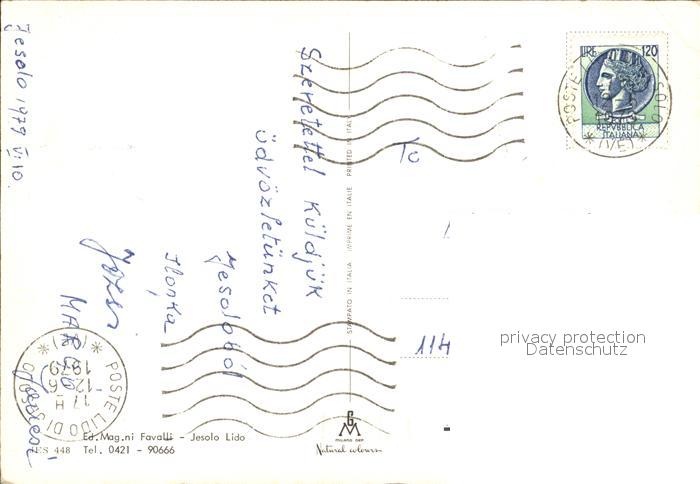 Jesolo 1979 VI.10.
Szeretettel küldjük
üdvözletünket
Jesoloból
Ilonka
Józsi
MARGÓ
Ed.Mag.ni Favalli - Jesolo Lido
JES 448 Tel. 0421 - 90666
POSTE LIDO DI JESOLO
(VE)
17 H
12-6
1979
STAMPATO IN ITALIA IMPRIME EN ITALIE PRINTED IN ITALY
GM
MILANO DEP.
Natural colours
LIRE 120
REPVBBLICA
ITALIANA
POSTE
SOLO
(VE)
114
privacy protection
Datenschutz